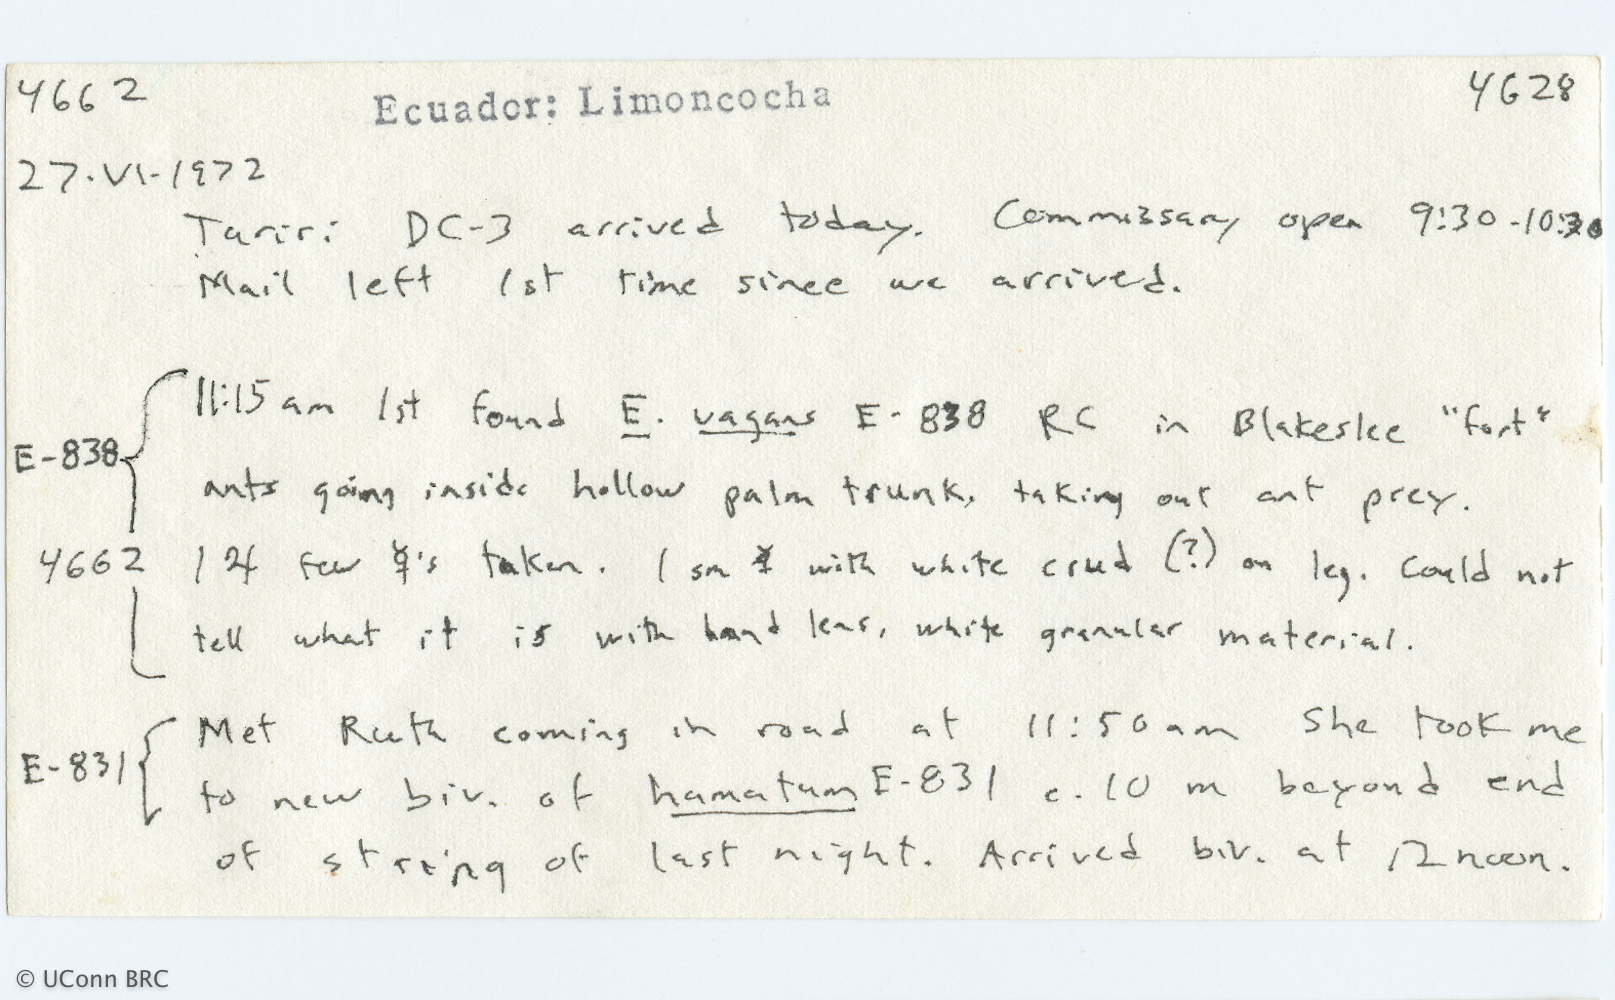 4662 Ecuador: Limoncocha 4628
27-VI-1972
Tariri DC-3 arrived today. Commissary open 9:30-10:30
Mail left 1st time since we arrived.
11:15 am 1st found E. vagans E-838 RC in Blakeslee "fort"
E-838
ants going inside hollow palm trunk, taking out ant prey.
4662 1 ♃ few ☿'s taken. 1 sm ☿ with white crud (?) on leg. Could not
tell what it is with hand lens, white granular material.
Met Ruth coming in road at 11:50 am She took me
E-831 to new biv. of hamatum E-831 c. 10 m beyond end
of string of last night. Arrived biv. at 12 noon.
© UConn BRC